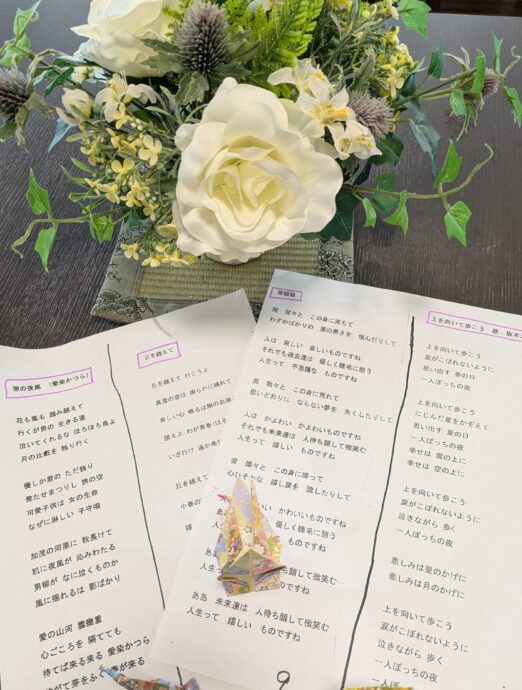 旅の夜風 (愛染かつら)
花も嵐も 踏み越えて
行くが男の 生きる道
泣いてくれるな ほろほろ鳥よ
月の比叡を 独り行く
優しか君の ただ独り
発たせまつりし 旅の空
可愛子供は 女の生命
なぜに淋しい 子守唄
加茂の河原に 秋長けて
肌に夜風が 沁みわたる
男柳が なに泣くものか
風に揺れるは 影ばかり
愛の山河 雲幾重
心ごころを 隔てても
待てば来る来る 愛染かつら
やがて芽をふく 春が来る
丘を越えて
丘を越えて 行こうよ
真澄の空は 朗らかに晴れて
楽しい心 鳴るは胸の血潮
讃えよ わが青春
いざ行け 遥か
丘を越えて
小春の
愛燦燦
雨 潸々と この身に落ちて
わずかばかりの 運の悪さを 恨んだりして
人は 哀しい 哀しいものですね
それでも過去達は 優しく睫毛に憩う
人生って 不思議な ものですね
風 散々と この身に荒れて
思いどおりに ならない夢を 失くしたりして
人は かよわい かよわいものですね
それでも未来達は 人待ち顔して微笑む
人生って 嬉しい ものですね
愛 燦々と この身に降って
心ひそかな 嬉し涙を 流したりして
かわいい かわいいものですね
優しく睫毛に憩う
ものですね
ああ 人待ち顔して微笑む
人生って ものですね
ああ 未来達は 人待ち顔して微笑む
人生って 嬉しい ものですね
9
上を向いて歩こう 歌:坂本
上を向いて歩こう
涙がこぼれないように
思い出す 春の日
一人ぼっちの夜
上を向いて歩こう
にじんだ星をかぞえて
思い出す 夏の日
一人ぼっちの夜
幸せは 雲の上に
幸せは 空の上に
上を向いて歩こう
涙がこぼれないように
泣きながら 歩く
一人ぼっちの夜
悲しみは星のかげに
悲しみは月のかげに
上を向いて歩こう
涙がこぼれないように
泣きながら 歩く
一人ぼっちの夜
一人ぼっちの夜